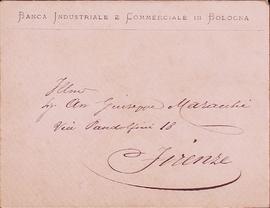 BANCA INDUSTRIALE E COMMERCIALE IN BOLOGNA
Illmo
Sig Avv Giuseppe
Via Pandolfini 18
Firenze